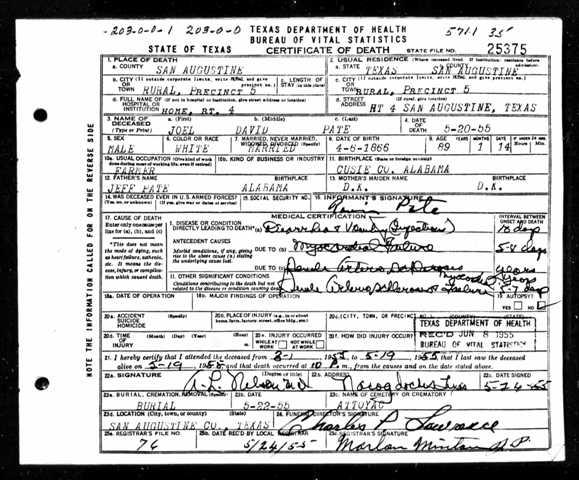 -203-0-0-1 203-0-0 TEXAS DEPARTMENT OF HEALTH 5711 35
BUREAU OF VITAL STATISTICS
STATE OF TEXAS CERTIFICATE OF DEATH STATE FILE NO. 25375
1. PLACE OF DEATH 2. USUAL RESIDENCE (Where deceased lived. If institution: residence before admission)
a. COUNTY SAN AUGUSTINE a. STATE TEXAS b. COUNTY SAN AUGUSTINE
b. CITY (If outside corporate limits, write RURAL and give precinct no.) OR TOWN RURAL, PRECINCT 5 c. LENGTH OF STAY (in this place) c. CITY (If outside corporate limits, write RURAL and give precinct no.) OR TOWN RURAL, PRECINCT 5
d. FULL NAME OF (If not in hospital or institution, give street address or location) HOSPITAL OR INSTITUTION HOME, RT. 4 d. STREET ADDRESS (If rural, give location) RT 4 SAN AUGUSTINE, TEXAS
3. NAME OF DECEASED (Type or Print) a. (First) JOEL b. (Middle) DAVID c. (Last) PATE 4. DATE OF DEATH 5-20-55
5. SEX MALE 6. COLOR OR RACE WHITE 7. MARRIED, NEVER MARRIED, WIDOWED, DIVORCED (Specify) MARRIED 8. DATE OF BIRTH 4-6-1866 9. AGE YEARS 89 MONTHS 1 DAYS 14
10a. USUAL OCCUPATION (Give kind of work done during most of working life, even if retired) FARMER 10b. KIND OF BUSINESS OR INDUSTRY 11. BIRTHPLACE (State or foreign country) CUSIE CO. ALABAMA
12. FATHER'S NAME JEFF PATE ALABAMA 13. MOTHER'S MAIDEN NAME D.K. D.K.
14. WAS DECEASED EVER IN U.S. ARMED FORCES? (Yes, no, or unknown) (If yes, give war or dates of service) 15. SOCIAL SECURITY NO. 16. INFORMANT'S SIGNATURE Pate
17. CAUSE OF DEATH MEDICAL CERTIFICATION INTERVAL BETWEEN ONSET AND DEATH
Enter only one cause per line for (a), (b), and (c)
I. DISEASE OR CONDITION DIRECTLY LEADING TO DEATH* (a)
*This does not mean the mode of dying, such as heart failure, asthenia, etc. It means the disease, injury, or complication which caused death.
ANTECEDENT CAUSES
Morbid conditions, if any, giving rise to the above cause (a) stating the underlying cause last.
DUE TO (b) Myocardial Failure 5-8 days
DUE TO (c) years
II. OTHER SIGNIFICANT CONDITIONS
Conditions contributing to the death but not related to the disease or condition causing death.
18a. DATE OF OPERATION 18b. MAJOR FINDINGS OF OPERATION 19. AUTOPSY? YES NO
20a. ACCIDENT SUICIDE HOMICIDE (Specify) 20b. PLACE OF INJURY (e.g., in or about home, farm, factory, street, office bldg., etc.) 20c. (CITY, TOWN, OR PRECINCT NO.) (COUNTY) (STATE)
20d. TIME OF INJURY 20e. INJURY OCCURRED WHILE AT WORK NOT WHILE AT WORK 20f. HOW DID INJURY OCCUR?
TEXAS DEPARTMENT OF HEALTH
REC'D JUN 8 1955
BUREAU OF VITAL STATISTICS
21. I hereby certify that I attended the deceased from 3-1 1955, to 5-19 1955 that I last saw the deceased
alive on 5-19 1955 and that death occurred at 10 P m., from the causes and on the date stated above.
22a. SIGNATURE (Degree or title) A. L. Nelson M.D. 22b. ADDRESS Nacogdoches Texas 22c. DATE SIGNED 5-24-55
23a. BURIAL, CREMATION, REMOVAL (Specify) BURIAL 23b. DATE 5-22-55 23c. NAME OF CEMETERY OR CREMATORY ATTOYAC
23d. LOCATION (City, town, or county) (State) SAN AUGUSTINE CO., TEXAS 24. FUNERAL DIRECTOR'S SIGNATURE Charles P Lawrance
25a. REGISTRAR'S FILE NO. 76 25b. DATE REC'D BY LOCAL REGISTRAR 5/24/55 25c. REGISTRAR'S SIGNATURE Marlan Minton J.P.
NOTE THE INFORMATION CALLED FOR ON THE REVERSE SIDE